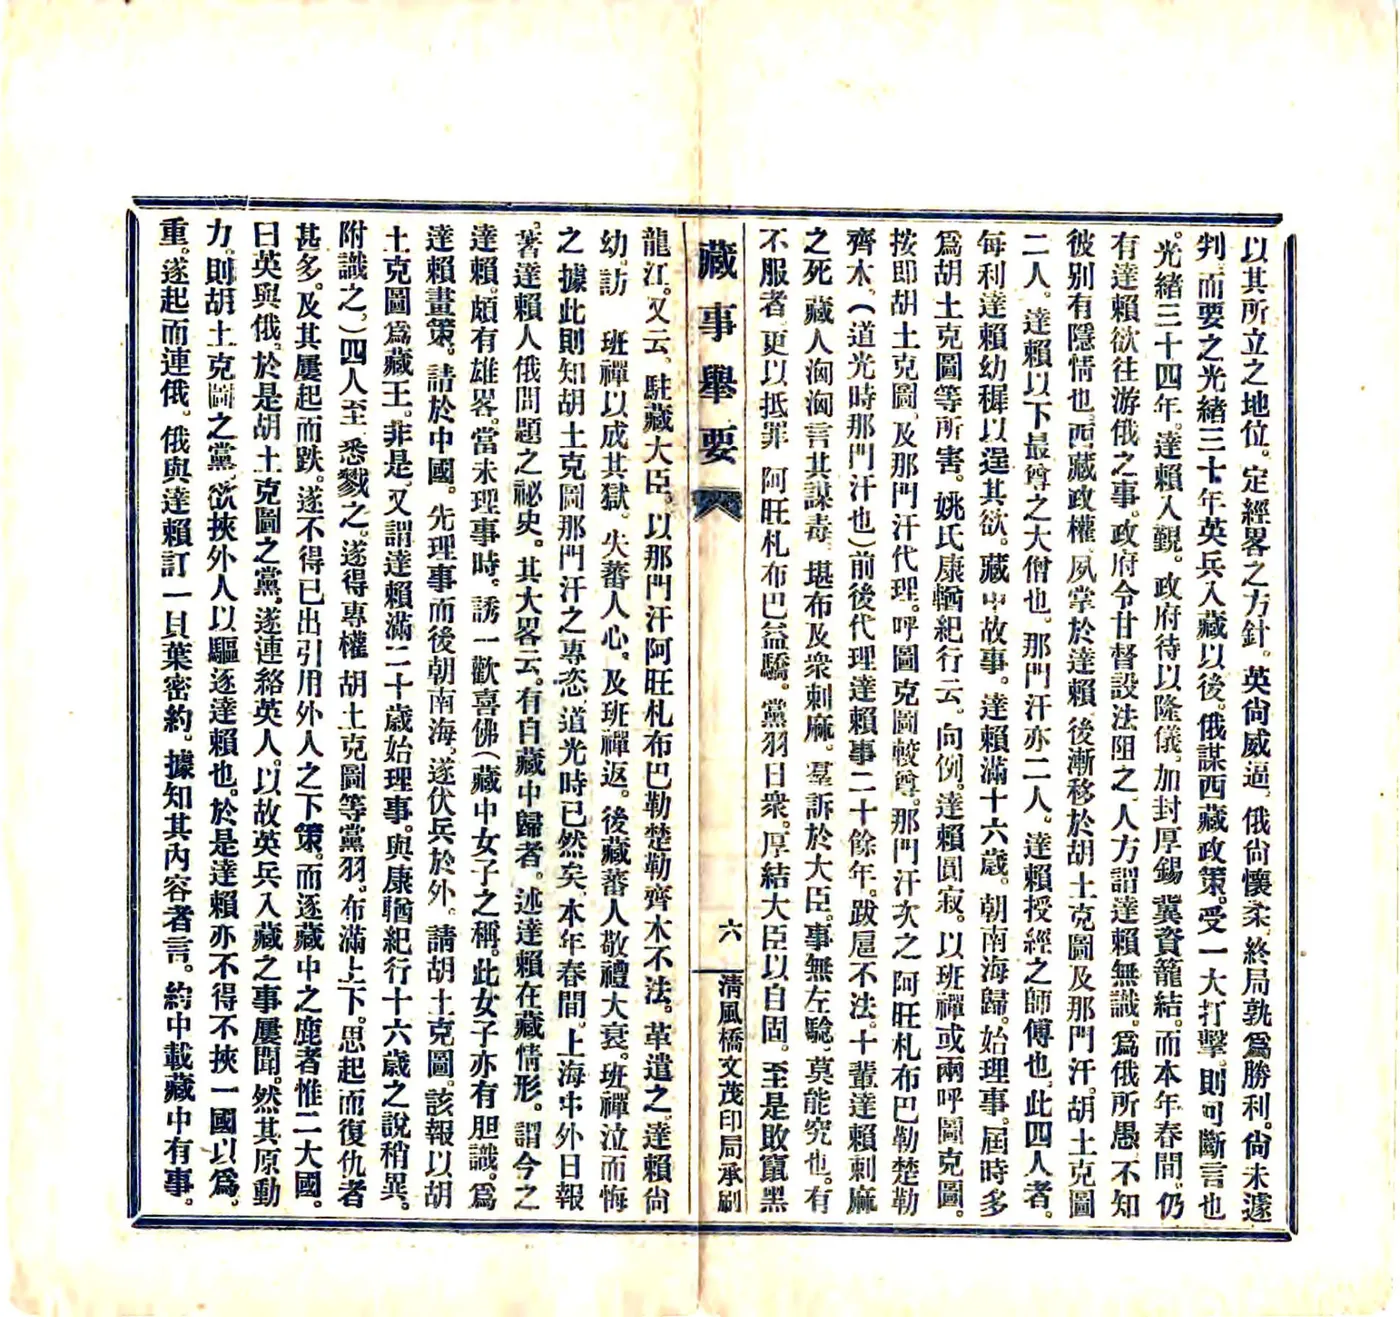 以其所立之地位。定經畧之方針。英尙威逼。俄尙懷柔。終局孰爲勝利。尙未遽
判。而要之光緒三十年英兵入藏以後。俄謀西藏政策。受一大打擊。則可斷言也
。光緒三十四年。達賴入覲。政府待以隆儀。加封厚錫。冀資籠結。而本年春間。仍
有達賴欲往游俄之事。政府令甘督設法阻之。人方謂達賴無識。爲俄所愚。不知
彼別有隱情也。西藏政權。夙掌於達賴。後漸移於胡土克圖及那門汗。胡土克圖
二人。達賴以下最尊之大僧也。那門汗亦二人。達賴授經之師傅也。此四人者。
每利達賴幼穉以逞其欲。藏中故事。達賴滿十六歲。朝南海歸。始理事。屆時多
爲胡土克圖等所害。姚氏康輶紀行云。向例。達賴圓寂。以班禪或兩呼圖克圖。
按即胡土克圖。及那門汗代理。呼圖克圖較尊。那門汗次之 阿旺札布巴勒楚勒
齊木。(道光時那門汗也)前後代理達賴事二十餘年。跋扈不法。十輩達賴剌麻
之死 藏人洶洶言其謀毒。堪布及衆剌麻。羣訴於大臣。事無左驗。莫能究也。有
不服者 更以抵罪 阿旺札布巴益驕。黨羽日衆。厚結大臣以自固。至是敗竄黑
藏事舉要
六
淸風橋文茂印局承刷
龍江。又云。駐藏大臣。以那門汗阿旺札布巴勒楚勒齊木不法。革遣之。達賴尙
幼。訪 班禪以成其獄。失蕃人心。及班禪返。後藏蕃人敬禮大衰。班禪泣而悔
之 據此則知胡土克圖那門汗之專恣 道光時已然矣。本年春間。上海中外日報
。著達賴人俄問題之祕史。其大畧云。有自藏中歸者。述達賴在藏情形。謂今之
達賴。頗有雄畧。當未理事時。誘一歡喜佛(藏中女子之稱。此女子亦有胆識。爲
達賴畫策。請於中國。先理事而後朝南海。遂伏兵於外。請胡土克圖。該報以胡
土克圖爲藏王。非是。又謂達賴滿二十歲始理事。與康輶紀行十六歲之說稍異。
附識之。)四人至 悉戮之。遂得專權 胡土克圖等黨羽。布滿上下。思起而復仇者
甚多。及其屢起而跌。遂不得已出引用外人之下策。而逐藏中之鹿者惟二大國。
曰英與俄。於是胡土克圖之黨。遂連絡英人。以故英兵入藏之事屢聞。然其原動
力。則胡土克圖之黨。欲挾外人以驅逐達賴也。於是達賴亦不得不挾一國以爲。
重。遂起而連俄。俄與達賴訂一貝葉密約。據知其內容者言。約中載藏中有事。